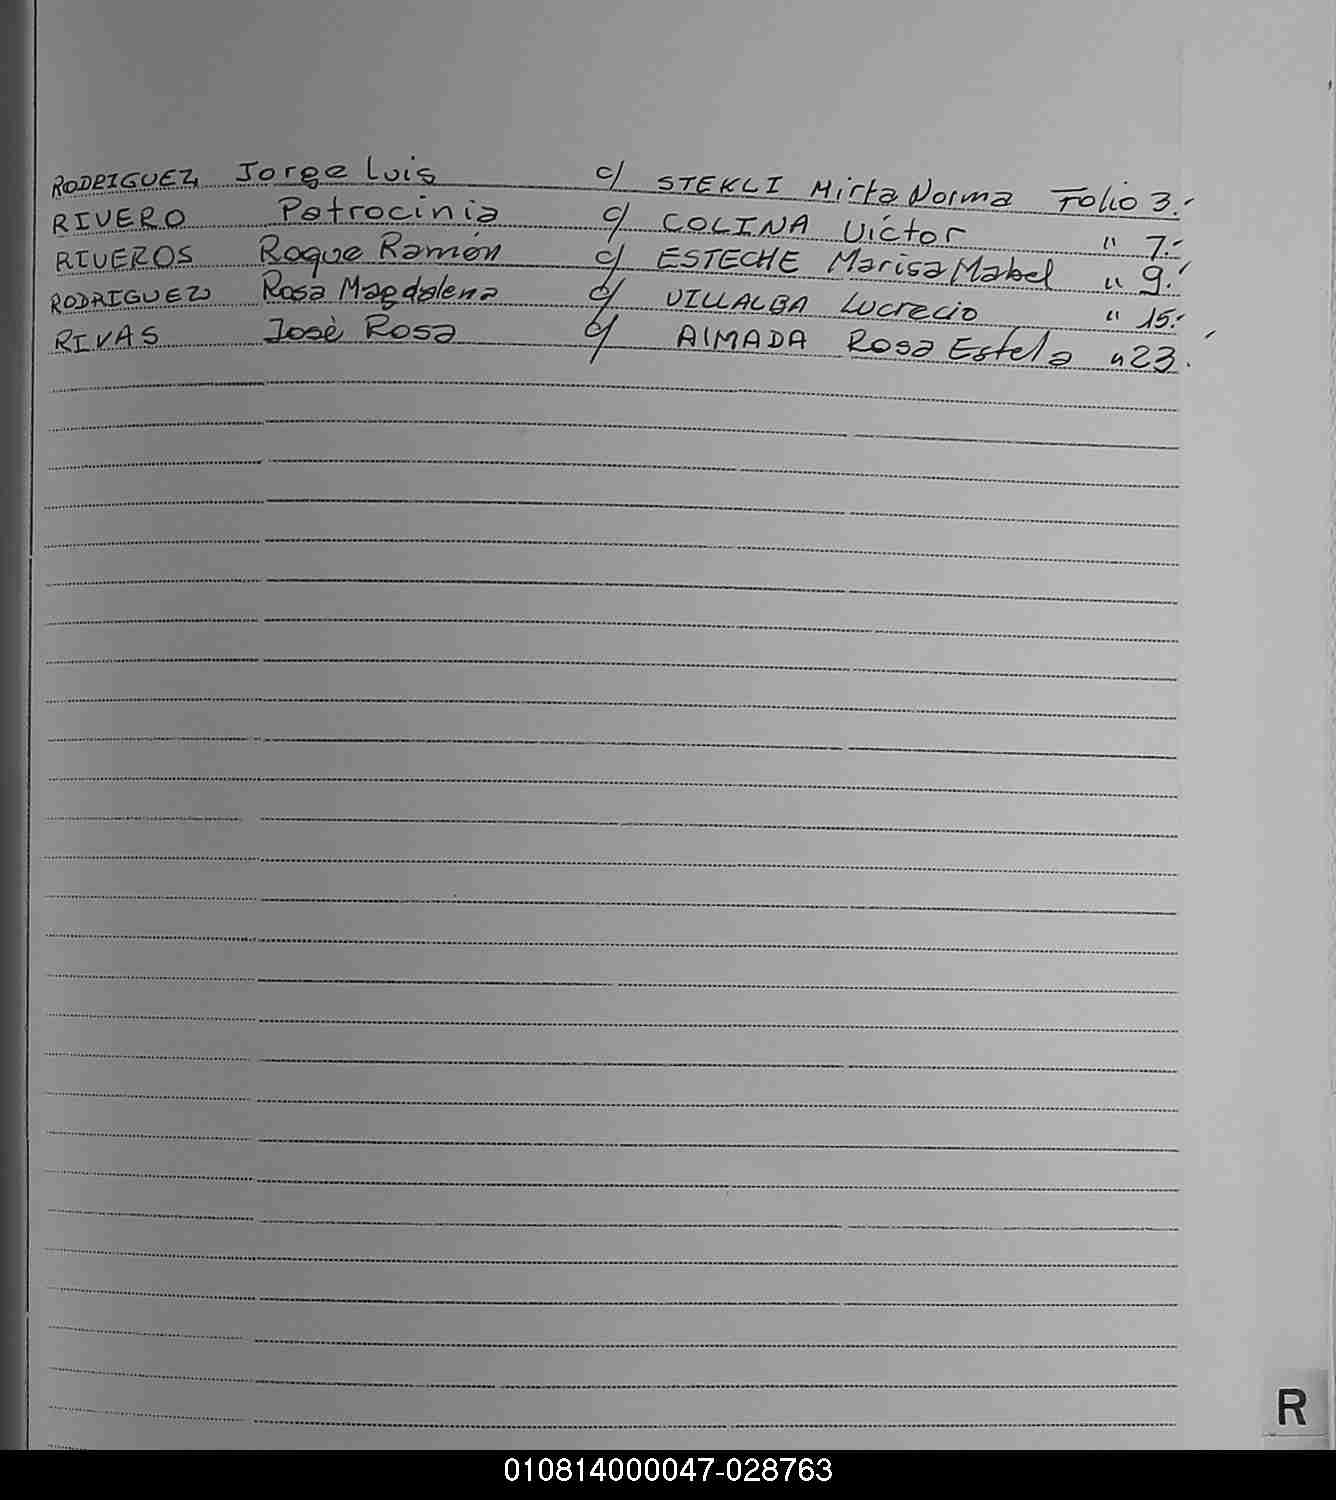 RODRIGUEZ Jorge Luis c/ STEKLI Mirta Norma Folio 3.-
RIVERO Patrocinia c/ COLINA Victor " 7.-
RIVEROS Roque Ramón c/ ESTECHE Marisa Mabel " 9.-
RODRIGUEZ Rosa Magdalena c/ VILLALBA Lucrecio " 15.-
RIVAS José Rosa c/ AlMADA Rosa Estela " 23.-
R
010814000047-028763